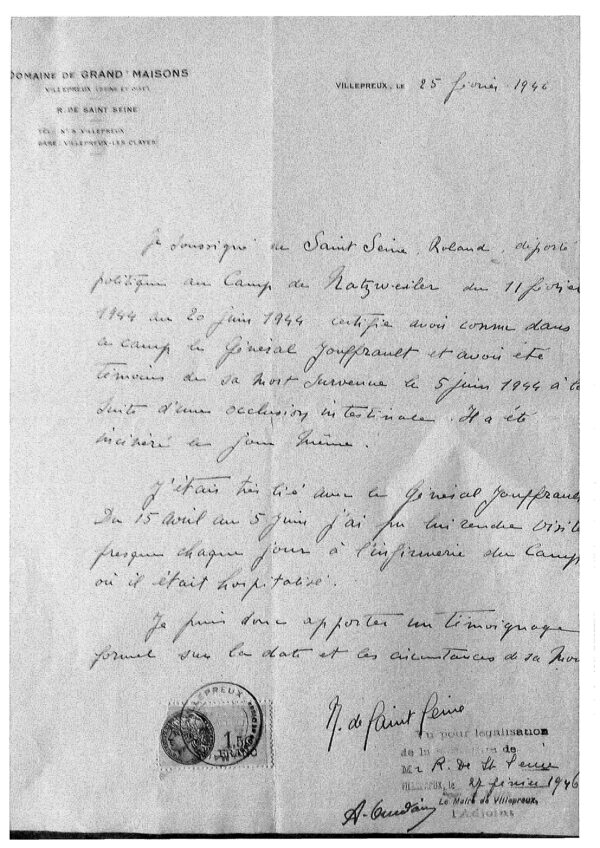 DOMAINE DE GRAND' MAISONS
VILLEPREUX (SEINE ET OISE)
R. DE SAINT SEINE
TÉL: N° 8 VILLEPREUX
GARE: VILLEPREUX-LES CLAYES
VILLEPREUX, LE 25 février 1946
Je soussigné de Saint Seine, Roland, déporté
politique au Camp de Natzweiler du 11 février
1944 au 20 juin 1944 certifie avoir connu dans
ce camp le Général Jouffrault et avoir été
témoin de sa mort survenue le 5 juin 1944 à la
suite d'une occlusion intestinale. Il a été
incinéré le jour même.
J'étais très lié avec le Général Jouffrault
Du 15 avril au 5 juin j'ai pu lui rendre visite
presque chaque jour à l'infirmerie du Camp
où il était hospitalisé.
Je puis donc apporter un témoignage
formel sur la date et les circonstances de sa mor
R. de Saint Seine
VILLEPREUX
1,5
FRANC
Vu pour légalisation
de la de
Mr R. De St Seine
VILLEPREUX, le 27 février 1946
Le Maire de Villepreux,
l'Adjoint